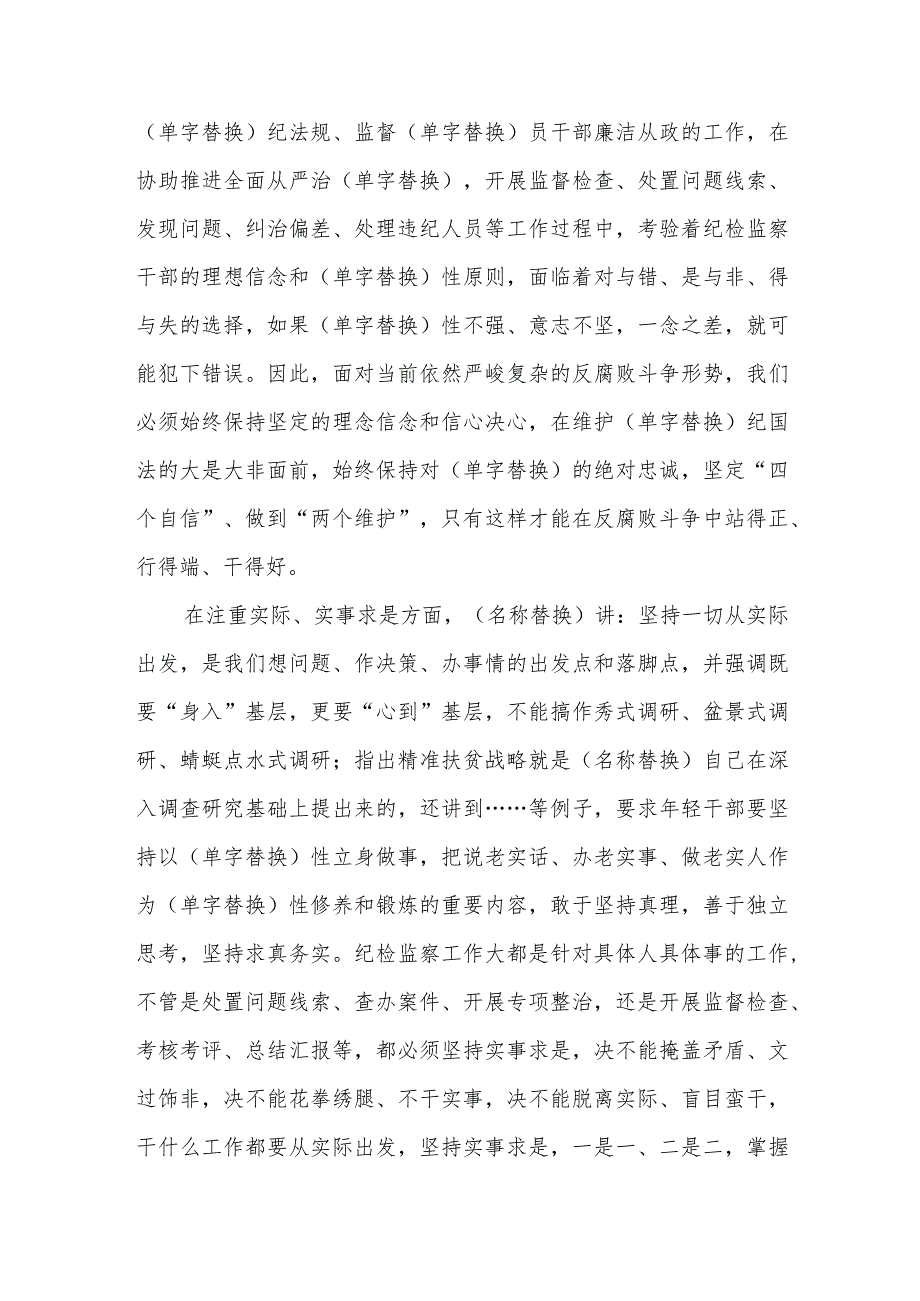 （单字替换）纪法规、监督（单字替换）员干部廉洁从政的工作，在
协助推进全面从严治（单字替换），开展监督检查、处置问题线索、
发现问题、纠治偏差、处理违纪人员等工作过程中，考验着纪检监察
干部的理想信念和（单字替换）性原则，面临着对与错、是与非、得
与失的选择，如果（单字替换）性不强、意志不坚，一念之差，就可
能犯下错误。因此，面对当前依然严峻复杂的反腐败斗争形势，我们
必须始终保持坚定的理念信念和信心决心，在维护（单字替换）纪国
法的大是大非面前，始终保持对（单字替换）的绝对忠诚，坚定“四
个自信”、做到“两个维护”，只有这样才能在反腐败斗争中站得正、
行得端、干得好。
在注重实际、实事求是方面，（名称替换）讲：坚持一切从实际
出发，是我们想问题、作决策、办事情的出发点和落脚点，并强调既
要“身入”基层，更要“心到”基层，不能搞作秀式调研、盆景式调
研、蜻蜓点水式调研；指出精准扶贫战略就是（名称替换）自己在深
入调查研究基础上提出来的，还讲到……等例子，要求年轻干部要坚
持以（单字替换）性立身做事，把说老实话、办老实事、做老实人作
为（单字替换）性修养和锻炼的重要内容，敢于坚持真理，善于独立
思考，坚持求真务实。纪检监察工作大都是针对具体人具体事的工作，
不管是处置问题线索、查办案件、开展专项整治，还是开展监督检查、
考核考评、总结汇报等，都必须坚持实事求是，决不能掩盖矛盾、文
过饰非，决不能花拳绣腿、不干实事，决不能脱离实际、盲目蛮干，
干什么工作都要从实际出发，坚持实事求是，一是一、二是二，掌握